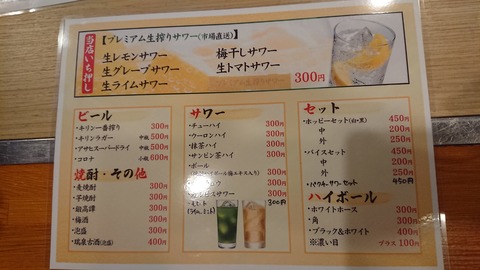 当店いち押し
【プレミアム生搾りサワー(市場直送)】
生レモンサワー 梅干しサワー
生グレープサワー 生トマトサワー
生ライムサワー 300円
ビール
・キリン一番搾り 300円
・キリンラガー 中瓶 500円
・アサヒスーパードライ 中瓶 500円
・コロナ 小瓶 600円
焼酎・その他
・麦焼酎 300円
・芋焼酎 300円
・銀高譚 300円
・梅酒 300円
・泡盛 300円
・瑞泉古酒(泡盛) 400円
サワー
・チューハイ 300円
・ウーロンハイ 300円
・抹茶ハイ 300円
・サンピン茶ハイ 300円
・ボール 300円
ハイボール梅エキス入り)
300円
ピスサワー 300円
300円
セット
・ホッピーセット(白・黒) 450円
中 200円
外 250円
・バイスセット 450円
中 200円
外 250円
・バイクサワーセット 450円
ハイボール
・ホワイトホース 300円
・角 300円
・ブラック&ホワイト 400円
※濃い目 プラス 100円